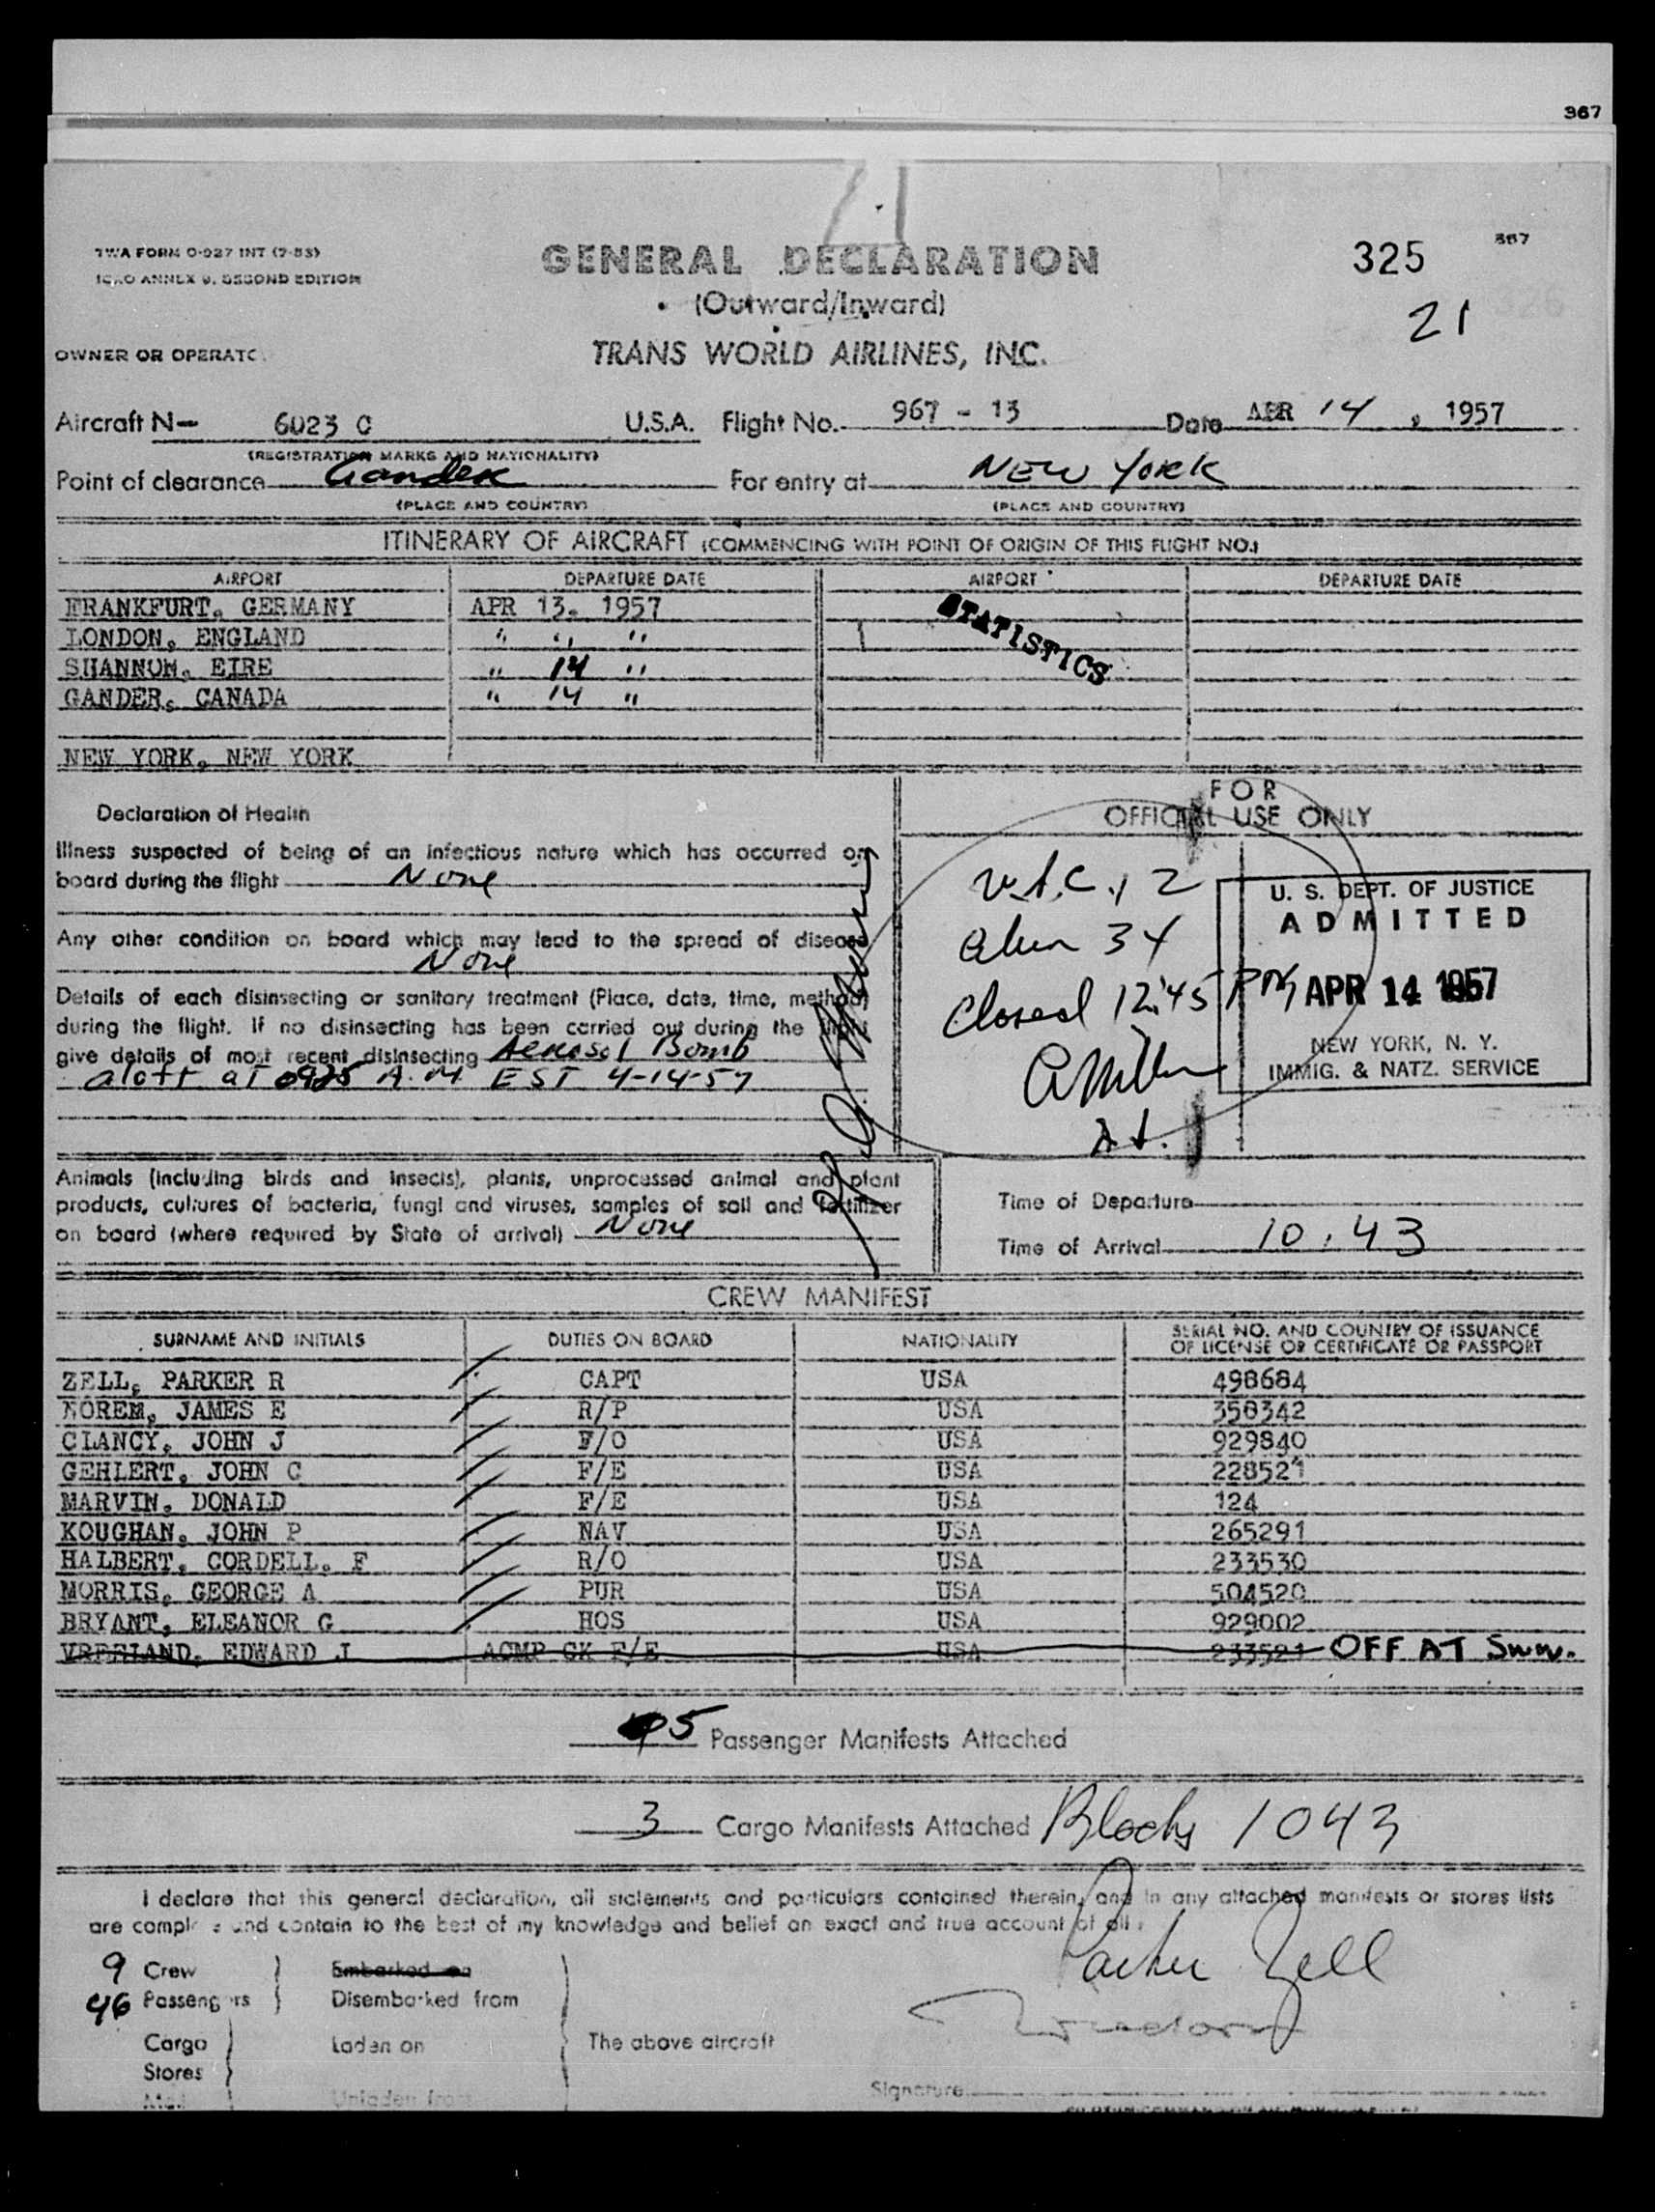 367
21
TWA FORM O-927 INT (7-53)
ICAO ANNEX 9, SECOND EDITION
GENERAL DECLARATION
325
367
(Outward/Inward)
21
OWNER OR OPERATO
TRANS WORLD AIRLINES, INC.
Aircraft N— 6023 C U.S.A. Flight No. 967 - 13 Date APR 14, 1957
(REGISTRATION MARKS AND NATIONALITY)
Point of clearance Gander For entry at NEW YORK
(PLACE AND COUNTRY) (PLACE AND COUNTRY)
ITINERARY OF AIRCRAFT (COMMENCING WITH POINT OF ORIGIN OF THIS FLIGHT NO.)
AIRPORT DEPARTURE DATE AIRPORT DEPARTURE DATE
FRANKFURT, GERMANY APR 13, 1957
LONDON, ENGLAND " " "
SHANNON, EIRE " 14 "
GANDER, CANADA " 14 "
STATISTICS
NEW YORK, NEW YORK
Declaration of Health
Illness suspected of being of an infectious nature which has occurred on
board during the flight None
Any other condition on board which may lead to the spread of disease
None
Details of each disinsecting or sanitary treatment (Place, date, time, method)
during the flight. If no disinsecting has been carried out during the flight
give details of most recent disinsecting Aerosol Bomb
aloft at 0925 A.M EST 4-14-57
FOR
OFFICIAL USE ONLY
34
Closed 12:45 PM
U. S. DEPT. OF JUSTICE
ADMITTED
APR 14 1957
NEW YORK, N. Y.
IMMIG. & NATZ. SERVICE
Animals (including birds and insects), plants, unprocessed animal and plant
products, cultures of bacteria, fungi and viruses, samples of soil and fertilizer
on board (where required by State of arrival) None
Time of Departure
Time of Arrival 10:43
CREW MANIFEST
SURNAME AND INITIALS DUTIES ON BOARD NATIONALITY SERIAL NO. AND COUNTRY OF ISSUANCE
OF LICENSE OR CERTIFICATE OR PASSPORT
ZELL, PARKER R CAPT USA 498684
NOREM, JAMES E R/P USA 350342
CLANCY, JOHN J F/O USA 929840
GEHLERT, JOHN C F/E USA 228521
MARVIN, DONALD F/E USA 124
KOUGHAN, JOHN P NAV USA 265291
HALBERT, CORDELL, F R/O USA 233530
MORRIS, GEORGE A PUR USA 504520
BRYANT, ELEANOR G HOS USA 929002
VREELAND, EDWARD J ACMP CK F/E USA 233521 OFF AT Snn.
5 Passenger Manifests Attached
3 Cargo Manifests Attached Blocks 1043
I declare that this general declaration, all statements and particulars contained therein, and in any attached manifests or stores lists
are comple e and contain to the best of my knowledge and belief an exact and true account of all
Parker Zell
9 Crew Embarked on
46 Passengers Disembarked from
Cargo Laden on The above aircraft
Stores
Mail Unladen from
Signature